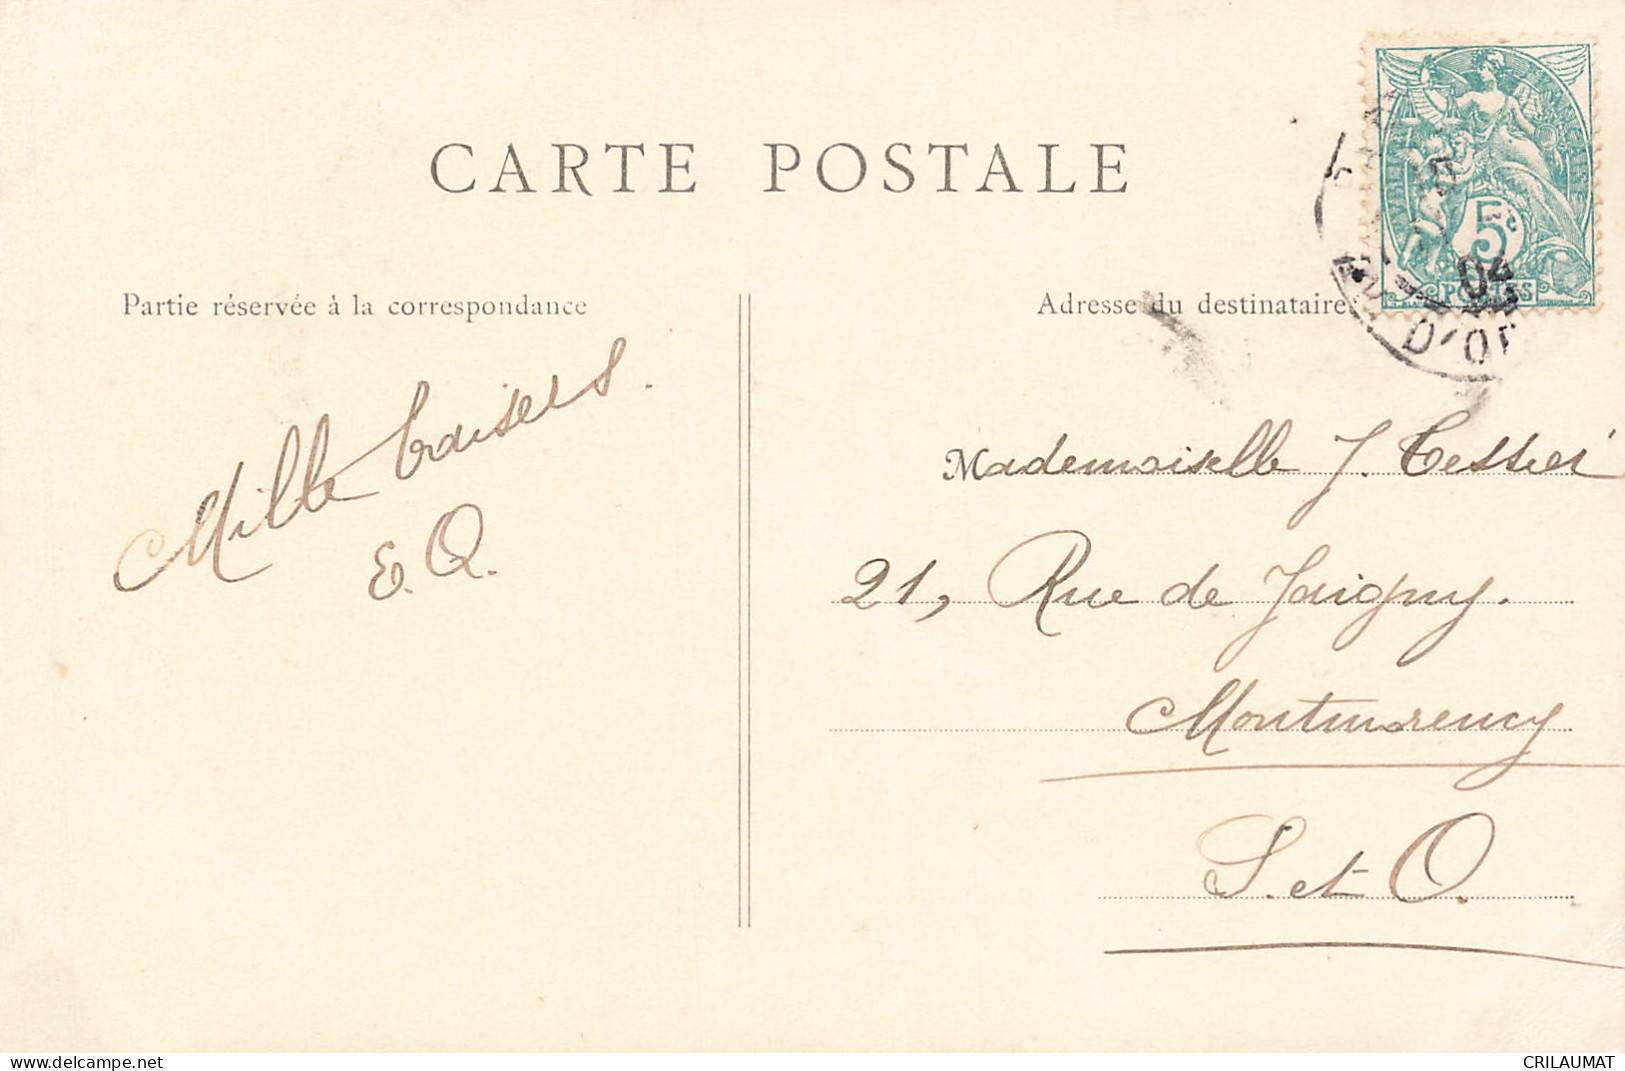 CARTE POSTALE
Partie réservée à la correspondance
Adresse du destinataire
Mille baisers.
E. Q.
Mademoiselle J. Tessier
21, Rue de Jaigny.
Montmorency
S. et O.
5c
POSTES
04
D'O
https://www.delcampe.net
CRILAUMAT